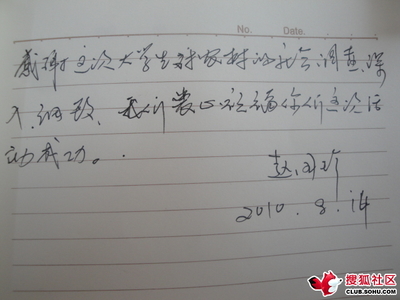 No. Date.
感谢这次大学生对农村的社会调查,深
入、细致,我们衷心祝福你们这次活
动成功。
赵
2010.8.14
搜狐社区
CLUB.SOHU.COM